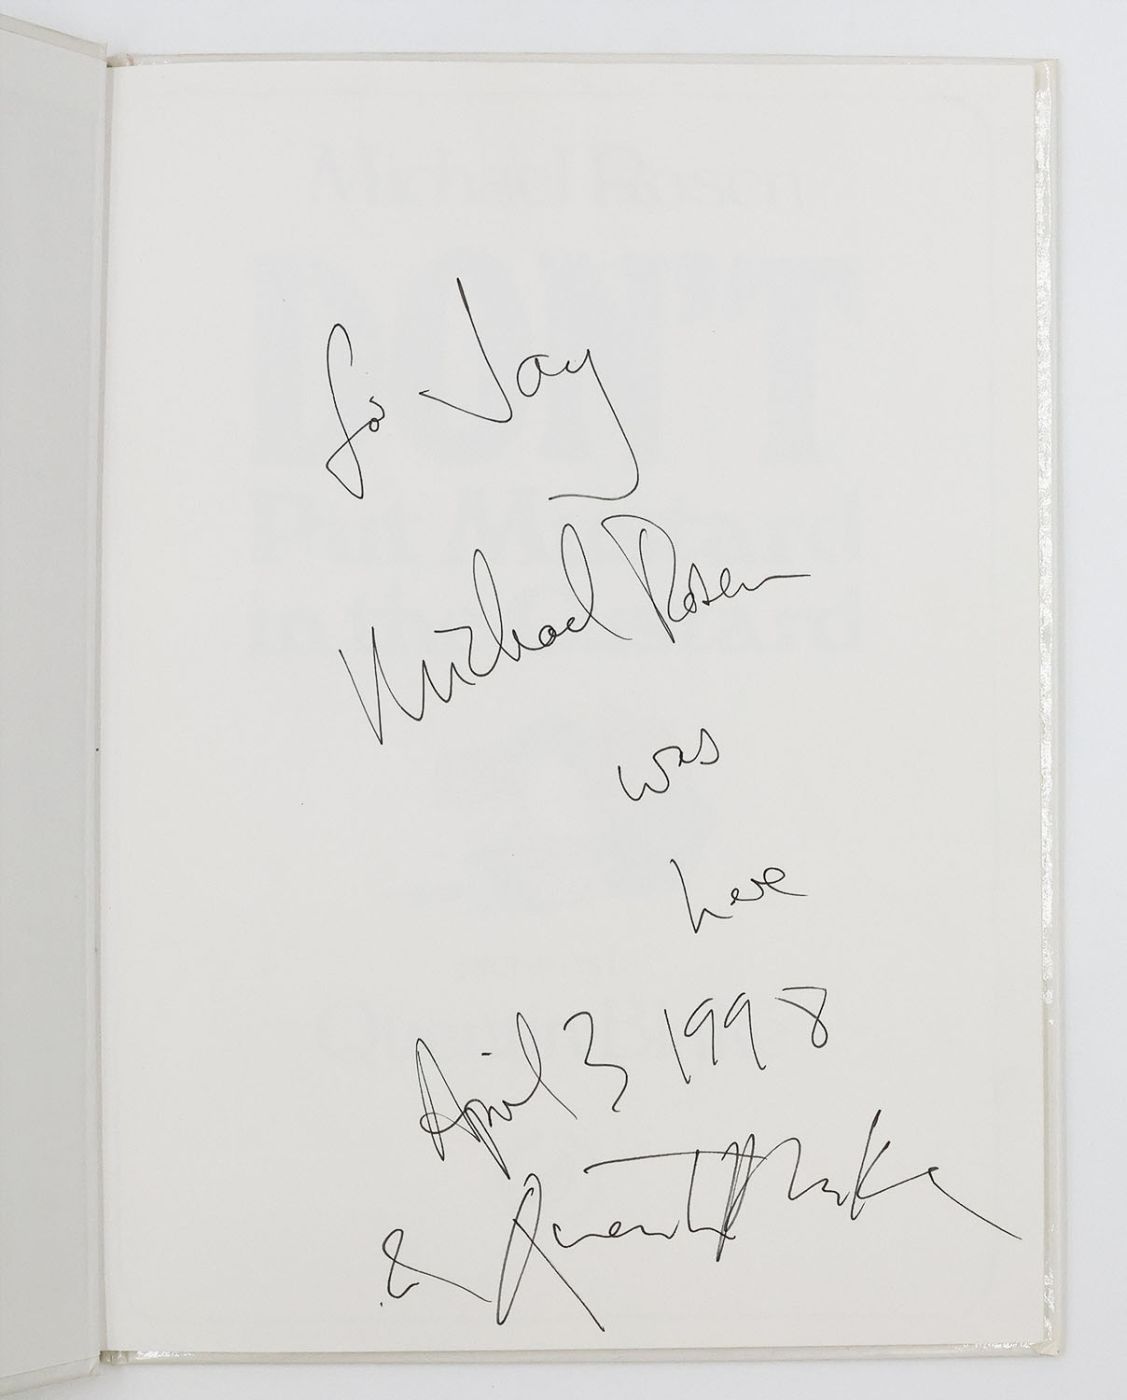 for Jay
Michael Rosen
was
here
April 3 1998
& Quentin Blake